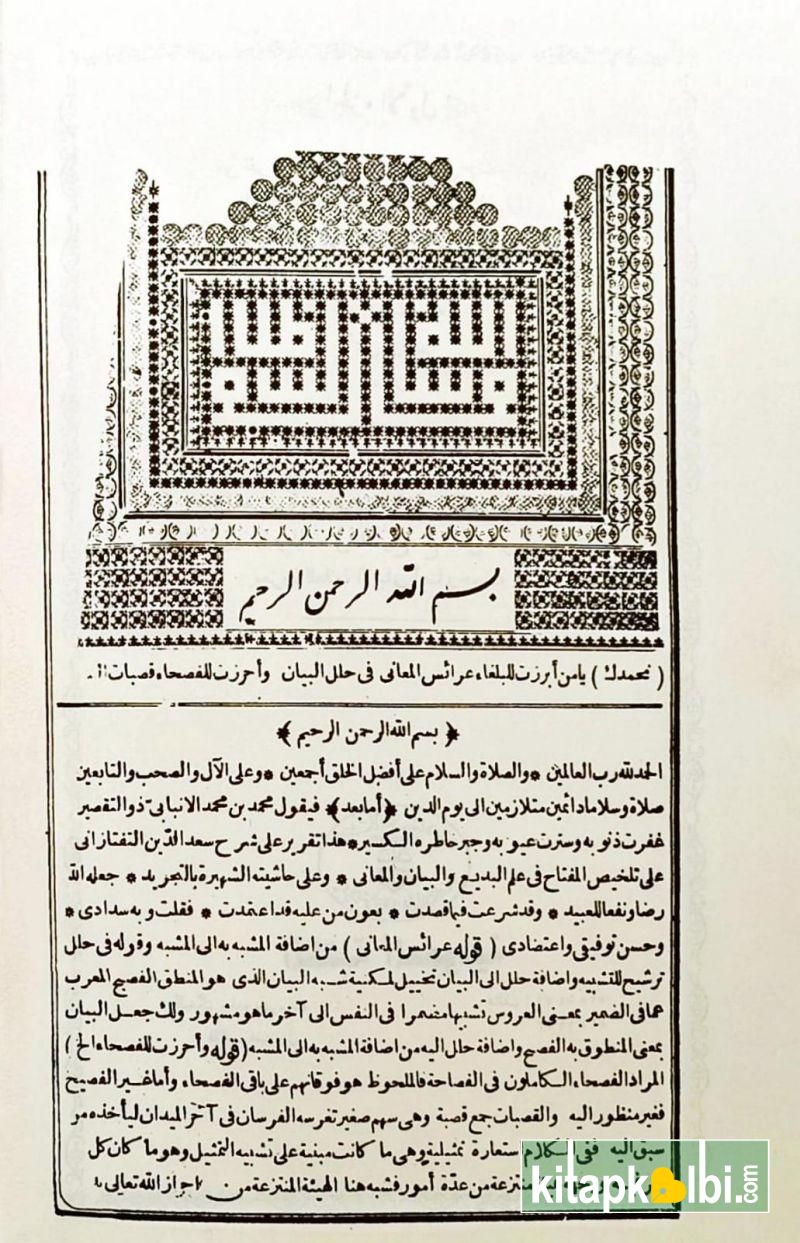 بسم الله الرحمن الرحيم
( نحمدك ) يا من أبرزت للبلغاء عرائس المعانى فى حلل البيان وأحرزت للفصحاء قصبات
﴿ بسم الله الرحمن الرحيم ﴾
الحمد لله رب العالمين * والصلاة والسلام على أفضل الخلق أجمعين * وعلى الآل والصحب والتابعين
صلاة وسلاما دائمين متلازمين الى يوم الدين ﴿ أما بعد ﴾ فيقول محمد بن محمد الانبابى ذو التقصير
غفرت ذنوبه وسترت عيوبه وجبر خاطره الكسير * هذا تقرير على شرح سعد الدين التفتازانى
على تلخيص المفتاح فى علم البديع والبيان والمعانى * وعلى حاشيته الشهيرة بالتجريد * جعله الله
رضا ونفعا للعبيد * وقد شرعت فيما قصدت * بعون من عليه قد اعتمدت * فقلت وبه سدادى *
وحسن توفيقى واعتضادى ( قوله عرائس المعانى ) من اضافة المشبه به الى المشبه وقوله فى حلل
ترشيح للتشبيه واضافة حلل الى البيان تخييل لمكنية شبه البيان الذى هو المنطق الفصيح المعرب
عما فى الضمير بمعنى العروس تشبيها مضمرا فى النفس الى آخر ما هو مشهور ولك جعل البيان
بمعنى المنطوق به الفصيح واضافة حلل اليه من اضافة المشبه به الى المشبه ( قوله وأحرزت للفصحاء الخ )
المراد الفصحاء الكاملون فى الفصاحة فالملحوظ هو فوقانهم على باقى الفصحاء وأما غير الفصيح
فغير منظور اليه والقصبات جمع قصبة وهى سهم صغير تغرسه الفرسان فى آخر الميدان ليأخذه من
سبق اليه ففى الكلام استعارة تمثيلية وهى ما كانت مبنية على تشبيه التمثيل وهو ما كان كل
منتزعة من عدّة أمور فشبه هنا الهيئة المنتزعة من احراز الله تعالى
kitapkalbi.com